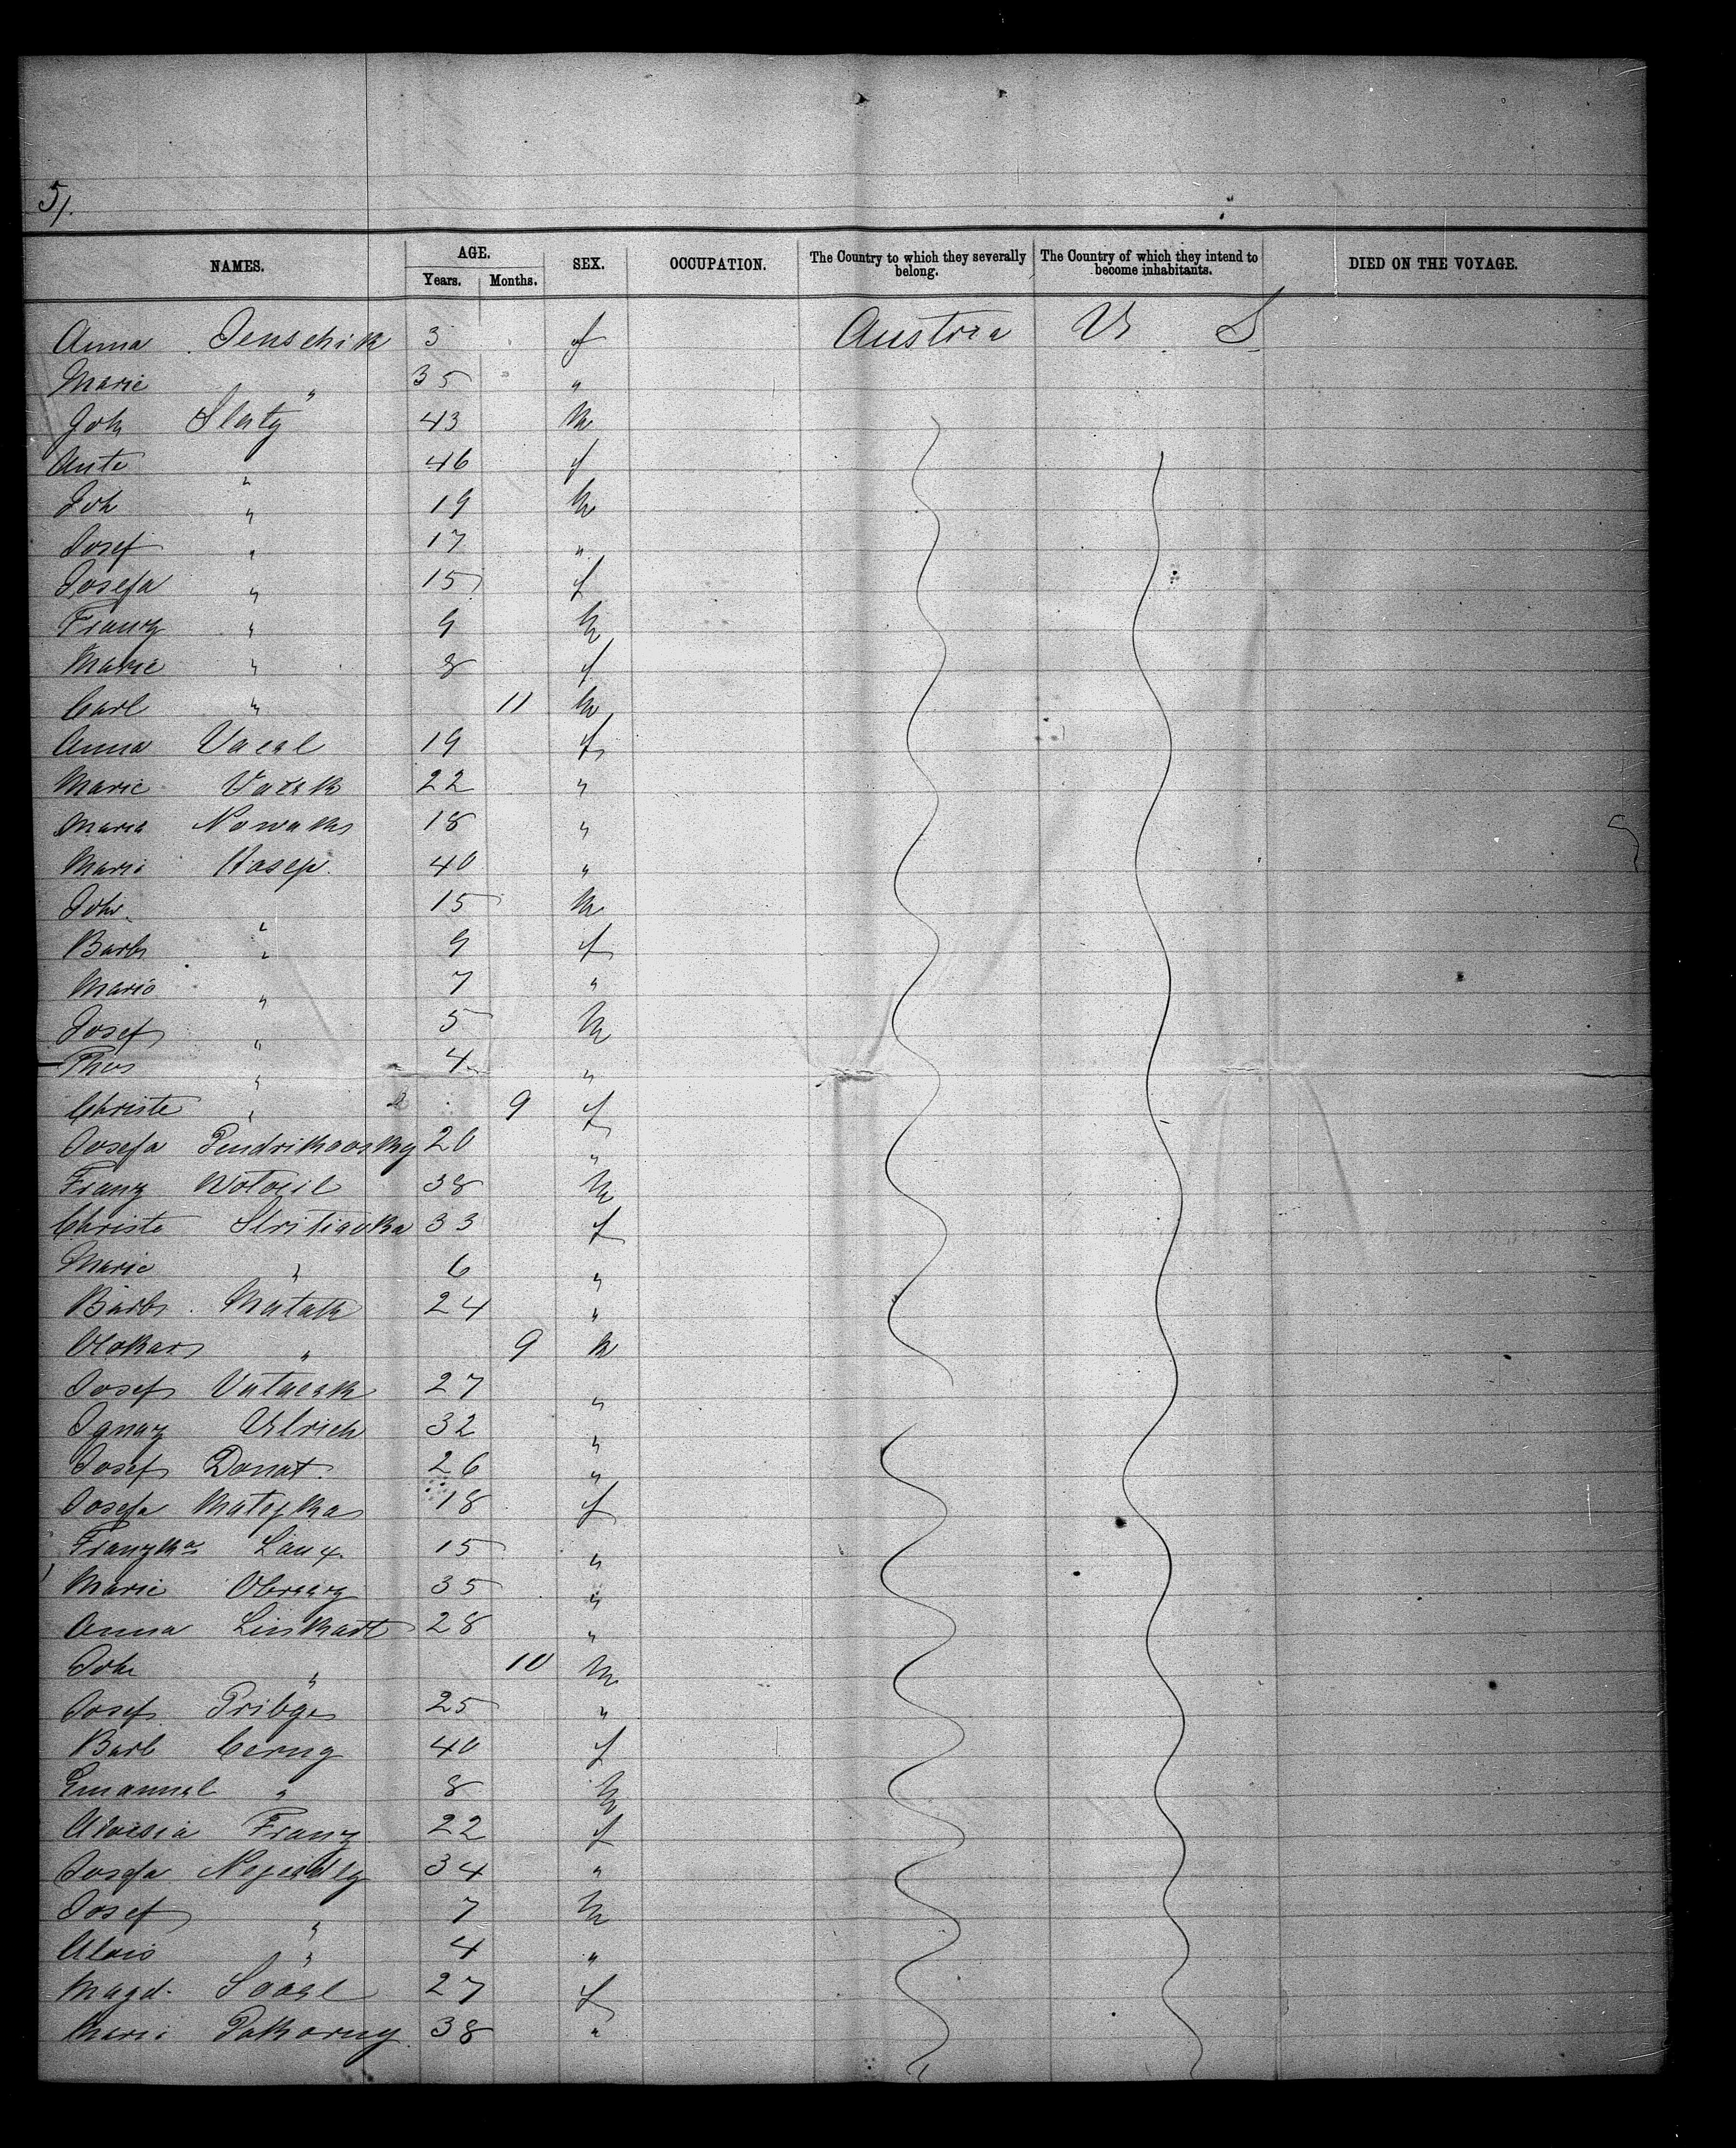 5/.
NAMES. AGE. Years. Months. SEX. OCCUPATION. The Country to which they severally belong. The Country of which they intend to become inhabitants. DIED ON THE VOYAGE.
Anna Jenschik 3 f Austria U S
Marie " 35 "
Joh Slaty 43 m
Ante " 46 f
Joh " 19 m
Josef " 17 "
Josefa " 15 f
Franz " 9 m
Marie " 8 f
Carl " 11 m
Anna Vacal 19 f
Marie 22 "
Maria Nowaks 18 "
Marie 40 "
Joh " 15 m
Barb " 9 f
Marie " 7 "
Josef " 5 m
Thos " 4 "
Christe " 9 f
Josefa Pendrikovsky 20 "
Franz 38 m
Christe 33 f
Marie " 6 "
Barb. Matak 24 "
" 9 m
Josef 27 "
Ignaz Ulrich 32 "
Josef Donat. 26 "
Josefa Matejka 18 f
Franzka 15 "
Marie 35 "
Anna Linkart 28 "
Joh " 10 m
Josef 25 "
Barb Cerny 40 f
Emanuel " 8 m
Aloisia Franz 22 f
Josefa Nejedly 34 "
Josef " 7 m
Alois " 4 "
Magd. 27 f
Marie Pakorny 38 "